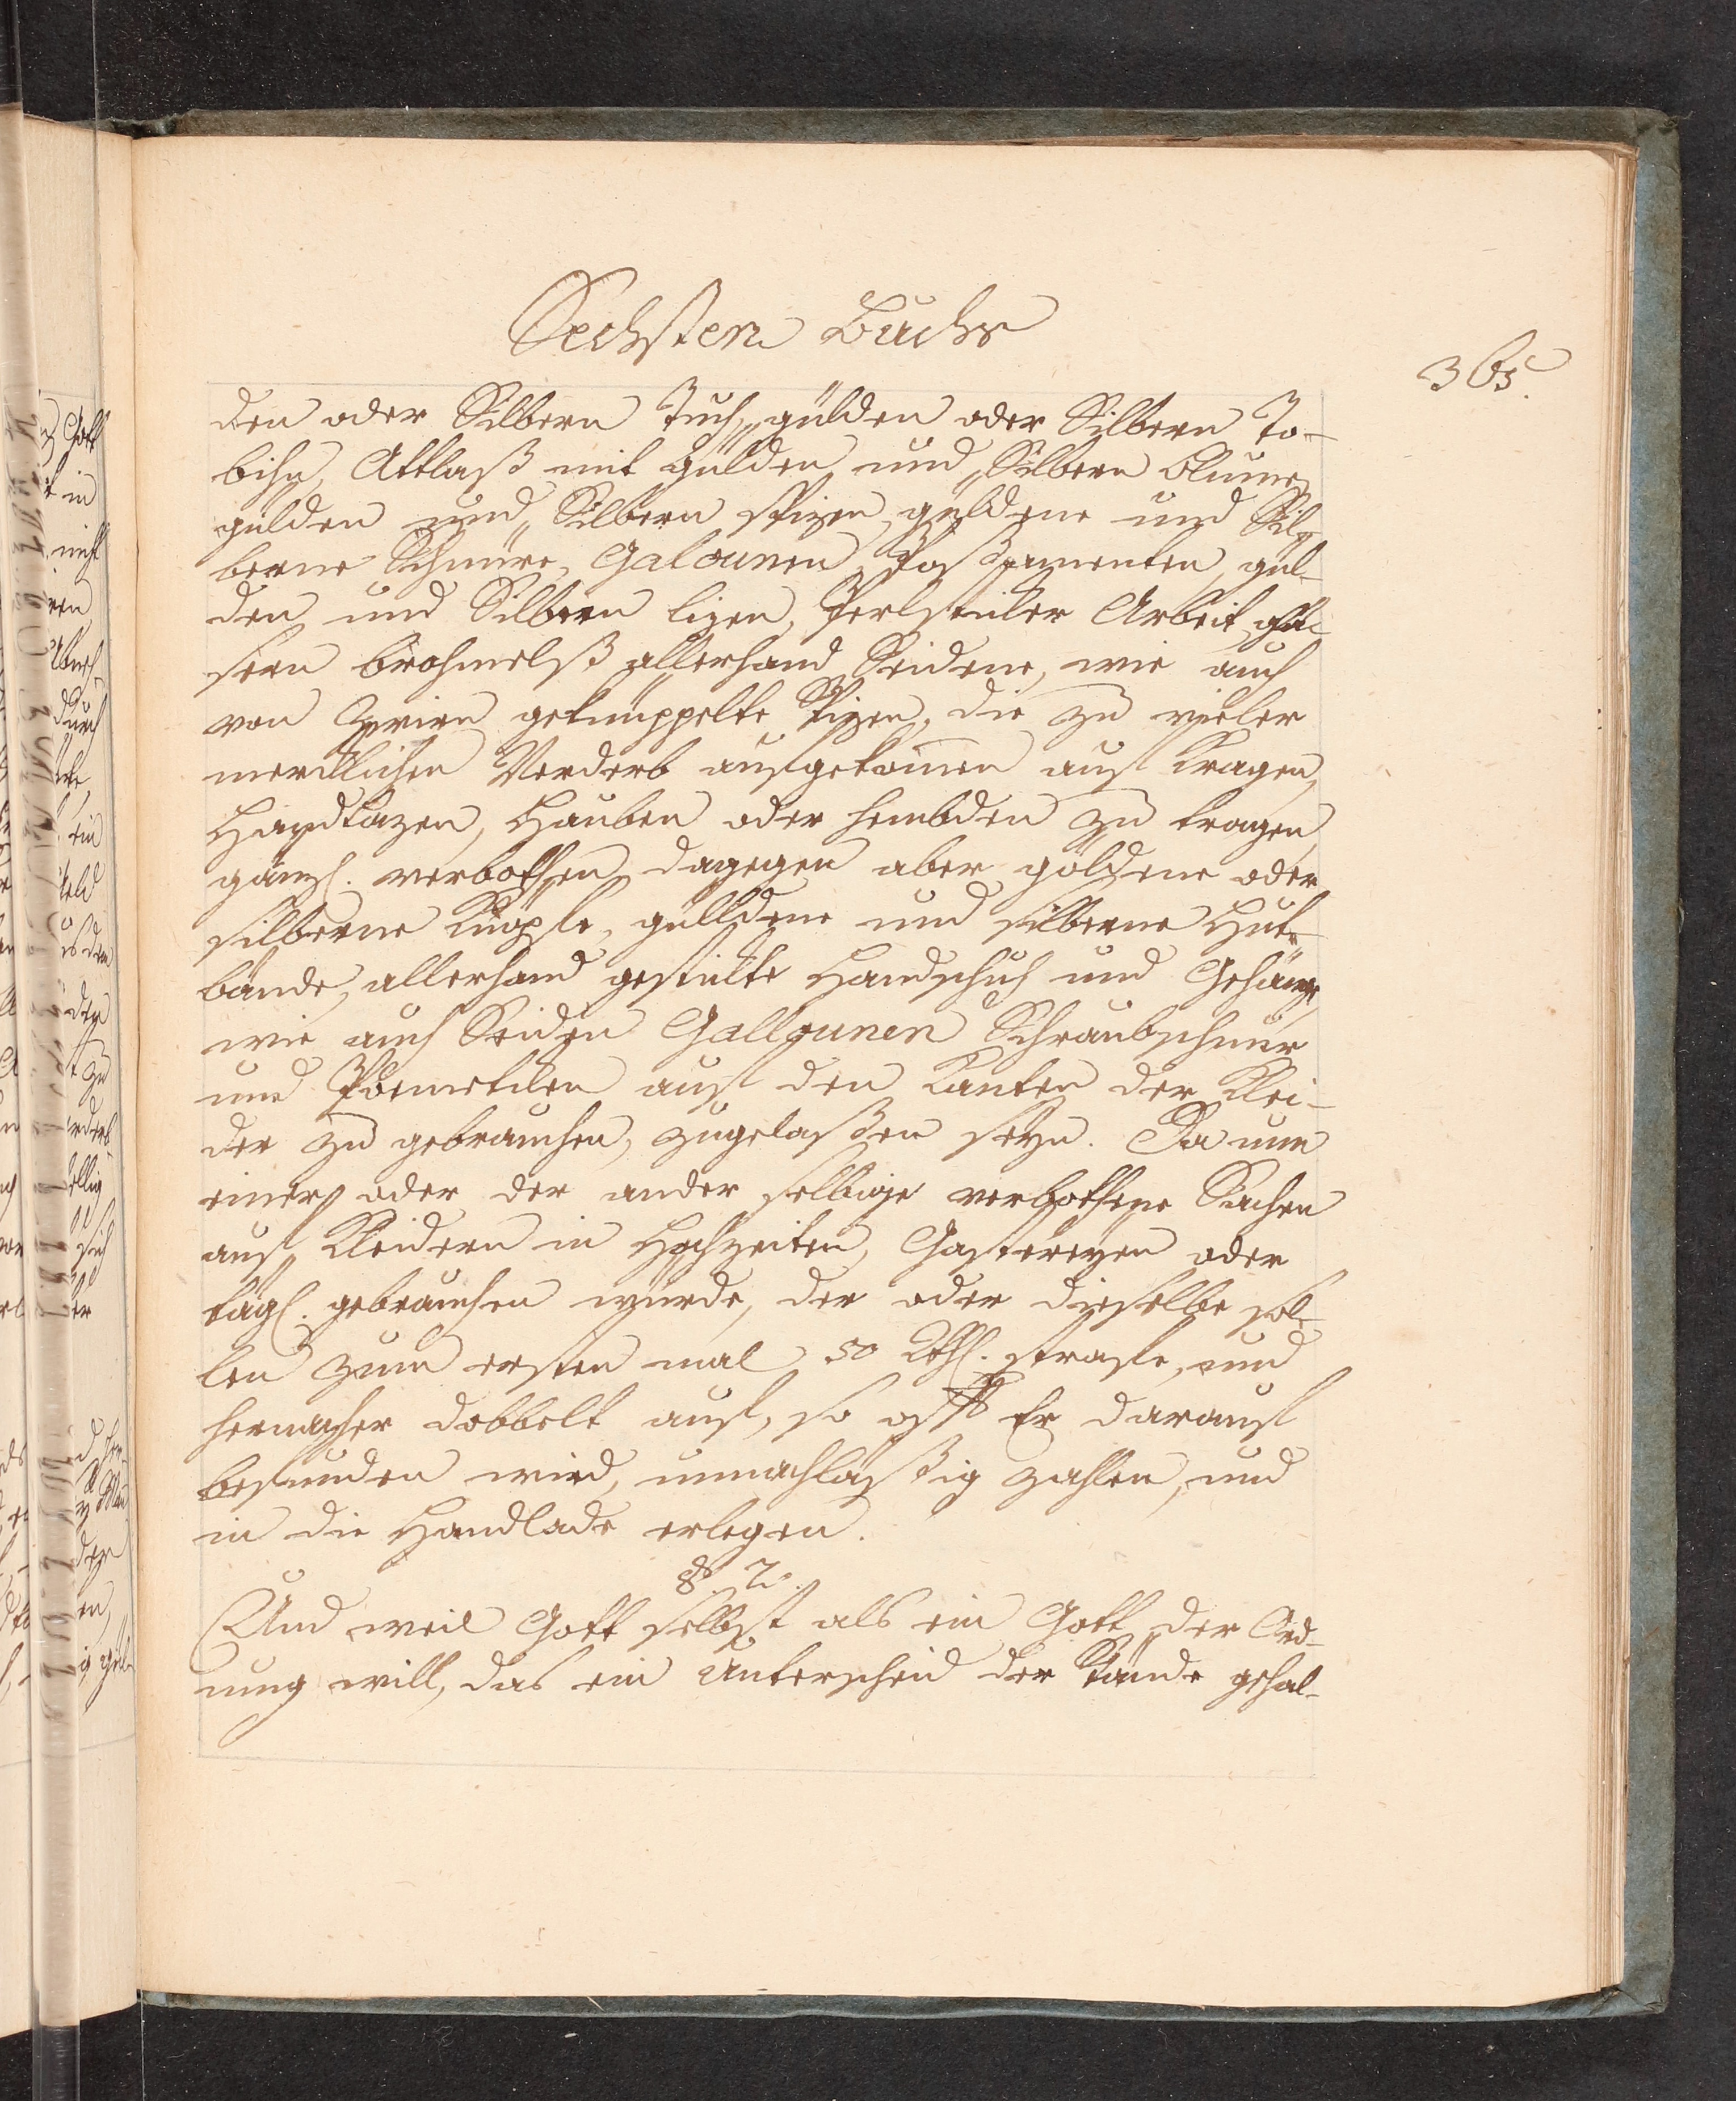 Sechsten Buchs
365.
den oder Silbern Tuch, gülden oder Silbern To-
bihn, Attlaß mit gülden und Silbern Blumen
gülden und Silbern Spizen, güldene und Sil-
berne Schnüre, Galounen, Poßamenten, gül-
den und Silbern lizen, Perlsticker Arbeit,
allerhand Seidene, wie auch
von Zwirn geknüppelte Spizen, die zu vieler
mercklichen Verderb aufgekom̄en auf Kragen,
Handtazen, Hauben oder hembden zu tragen,
gänzl. verbothen, dagegen aber göldene oder
silberne Knöpfe, gülldene und silberne Hut-
bände, allerhand gestickte Handschuh und Gehänge,
wie auch Seiden Gallounen Schraubschnür
und auf den Kanten der Klei-
der zu gebrauchen, zugelaßen seyn. Da nun
einer oder der ander selbige verbothene Sachen
auf Kleidern in Hochzeiten, Gastereyen oder
tägl. gebrauchen würde, der oder dieselbe sol-
len zum ersten mal 50 Rthl. strafe, und
hernacher dobbelt auf, so offt Er darauf
befunden wird, unnachläßig zahlen, und
in die Handlade erlegen.
§. 2.
Und weil Gott selbst als ein Gott der Ord-
nung will, das ein Unterscheid der Stände gehal-